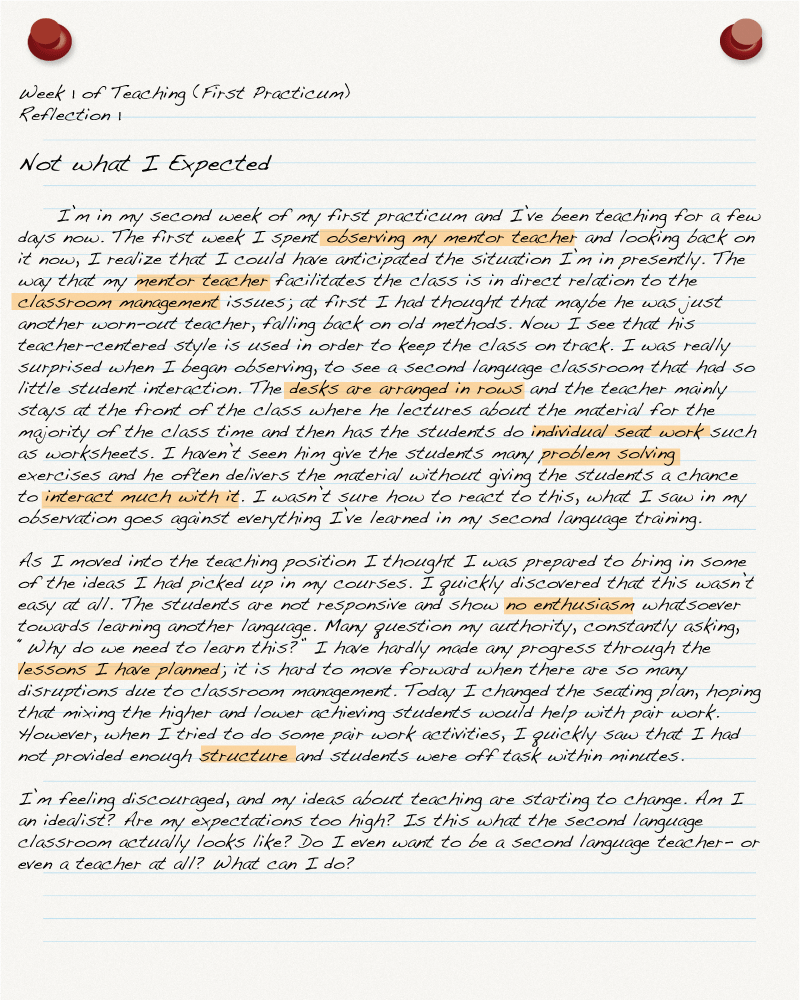 Week 1 of Teaching (First Practicum)
Reflection 1
Not what I Expected
I'm in my second week of my first practicum and I've been teaching for a few
days now. The first week I spent observing my mentor teacher and looking back on
it now, I realize that I could have anticipated the situation I'm in presently. The
way that my mentor teacher facilitates the class is in direct relation to the
classroom management issues; at first I had thought that maybe he was just
another worn-out teacher, falling back on old methods. Now I see that his
teacher-centered style is used in order to keep the class on track. I was really
surprised when I began observing, to see a second language classroom that had so
little student interaction. The desks are arranged in rows and the teacher mainly
stays at the front of the class where he lectures about the material for the
majority of the class time and then has the students do individual seat work such
as worksheets. I haven't seen him give the students many problem solving
exercises and he often delivers the material without giving the students a chance
to interact much with it. I wasn't sure how to react to this, what I saw in my
observation goes against everything I've learned in my second language training.
As I moved into the teaching position I thought I was prepared to bring in some
of the ideas I had picked up in my courses. I quickly discovered that this wasn't
easy at all. The students are not responsive and show no enthusiasm whatsoever
towards learning another language. Many question my authority, constantly asking,
"Why do we need to learn this?" I have hardly made any progress through the
lessons I have planned; it is hard to move forward when there are so many
disruptions due to classroom management. Today I changed the seating plan, hoping
that mixing the higher and lower achieving students would help with pair work.
However, when I tried to do some pair work activities, I quickly saw that I had
not provided enough structure and students were off task within minutes.
I'm feeling discouraged, and my ideas about teaching are starting to change. Am I
an idealist? Are my expectations too high? Is this what the second language
classroom actually looks like? Do I even want to be a second language teacher- or
even a teacher at all? What can I do?